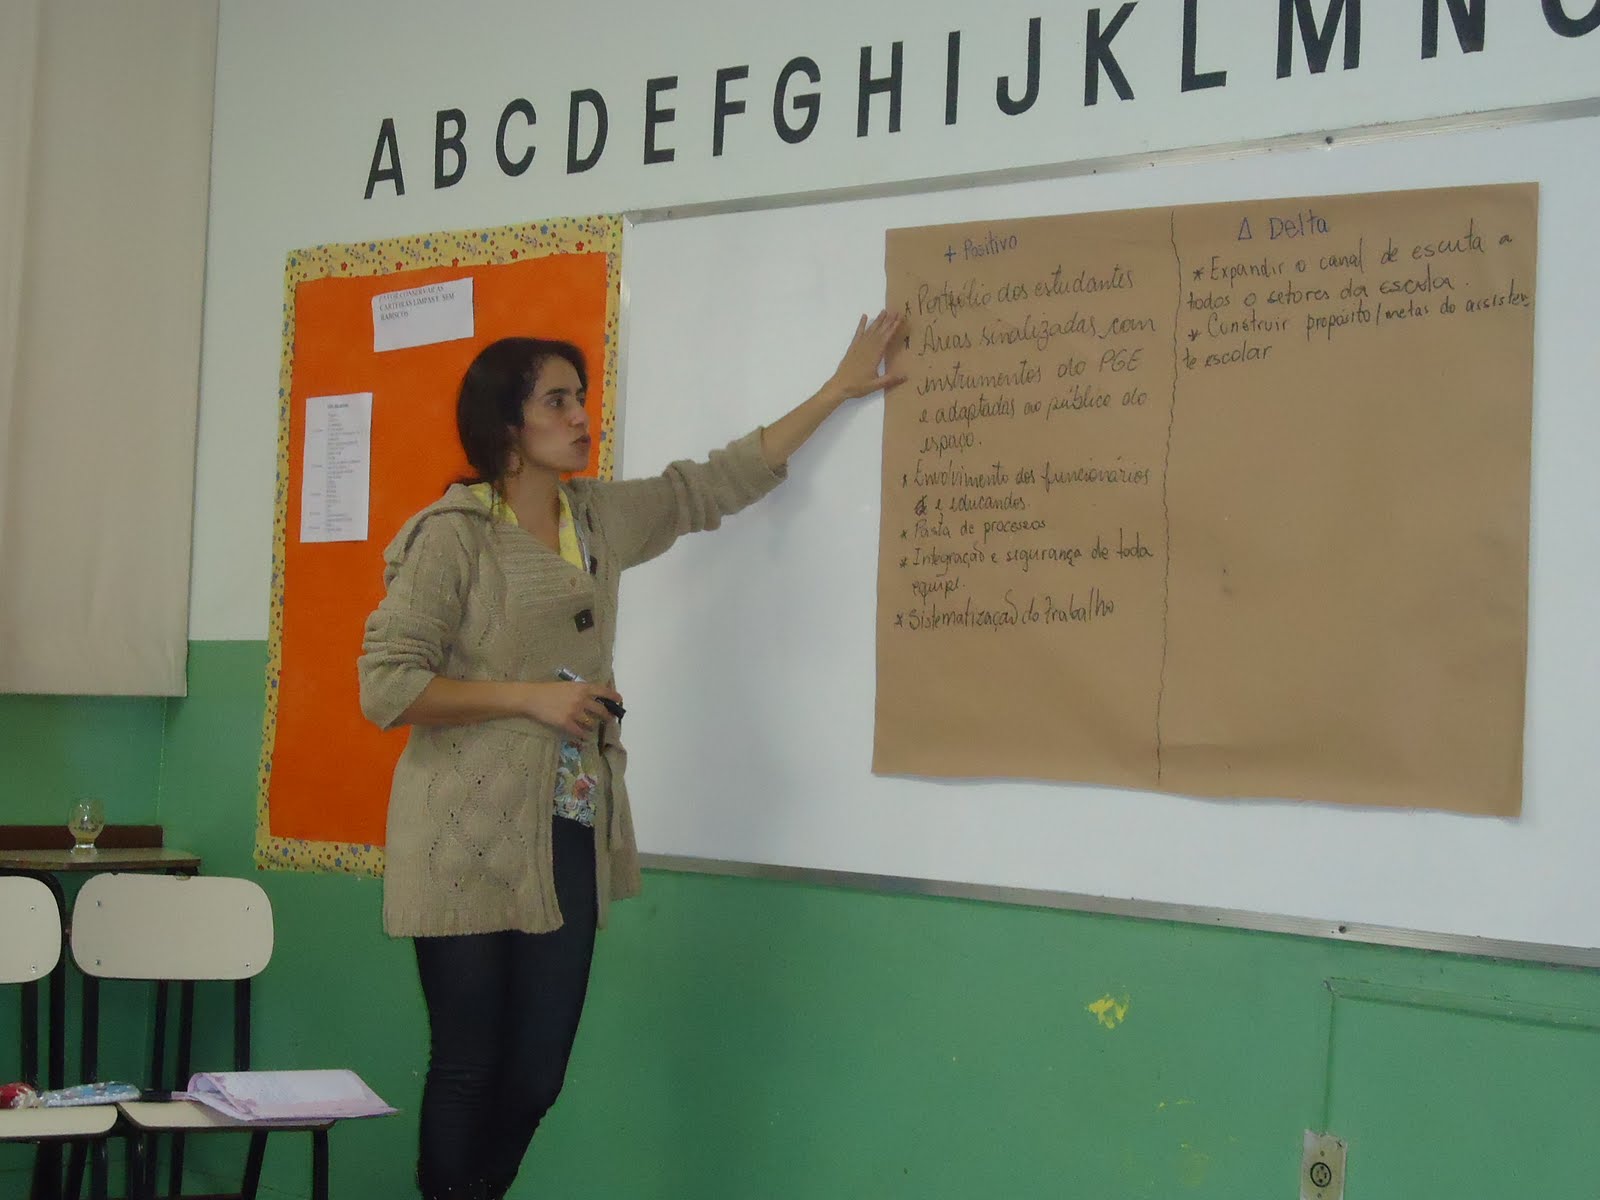 ABCDEFGHIJKLMN
FAVOR CONSERVAR AS
CARTEIRAS LIMPAS E SEM
RABISCOS
+ Positivo
* Portfólio dos estudantes
* Áreas sinalizadas com
instrumentos do PGE
e adaptadas ao público do
espaço.
* Envolvimento dos funcionários
e educandos.
* Pasta de processos
* Integração e segurança de toda
equipe.
* Sistematização do trabalho
Δ Delta
* Expandir o canal de escuta a
todos o setores da escola.
* Construir propósito/metas do assisten
te escolar